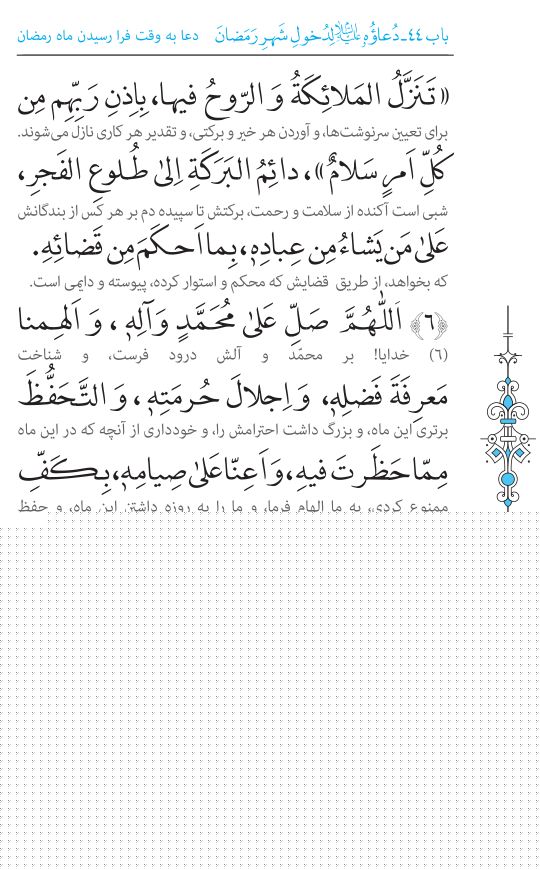 باب ٤٤ـ دُعاؤُهُ علیه‌السلام لِدُخولِ شَهرِ رَمَضانَ دعا به وقت فرا رسیدن ماه رمضان
«تَنَزَّلُ المَلائِکَةُ وَ الرّوحُ فیها، بِاِذنِ رَبِّهِم مِن
برای تعیین سرنوشت‌ها، و آوردن هر خیر و برکتی، و تقدیر هر کاری نازل می‌شوند.
کُلِّ اَمرٍ سَلامٌ»، دائِمُ البَرَکَةِ اِلیٰ طُـلوعِ الفَجرِ،
شبی است آکنده از سلامت و رحمت، برکتش تا سپیده دم بر هر کَس از بندگانش
عَلیٰ مَن یَشاءُ مِن عِبادِهٖ، بِما اَحکَمَ مِن قَضائِهٖ.
که بخواهد، از طریق قضایش که محکم و استوار کرده، پیوسته و دایمی است.
﴿٦﴾ اَللّٰهُمَّ صَلِّ عَلیٰ مُحَمَّدٍ وَ آلِهٖ ، وَ اَلهِـمنا
(٦) خدایا! بر محمّد و آلش درود فرست، و شناخت
مَعرِفَةَ فَضلِهٖ، وَ اِجلالَ حُرمَتِهٖ ، وَ التَّحَفُّظَ
برتری این ماه، و بزرگ داشت احترامش را، و خودداری از آنچه که در این ماه
مِمّا حَظَرتَ فیهِ، وَ اَعِنّا عَلیٰ صِیامِهٖ، بِـکَـفِّ
ممنوع کردی، به ما الهام فرما، و ما را به روزه داشتن این ماه، و حفظ